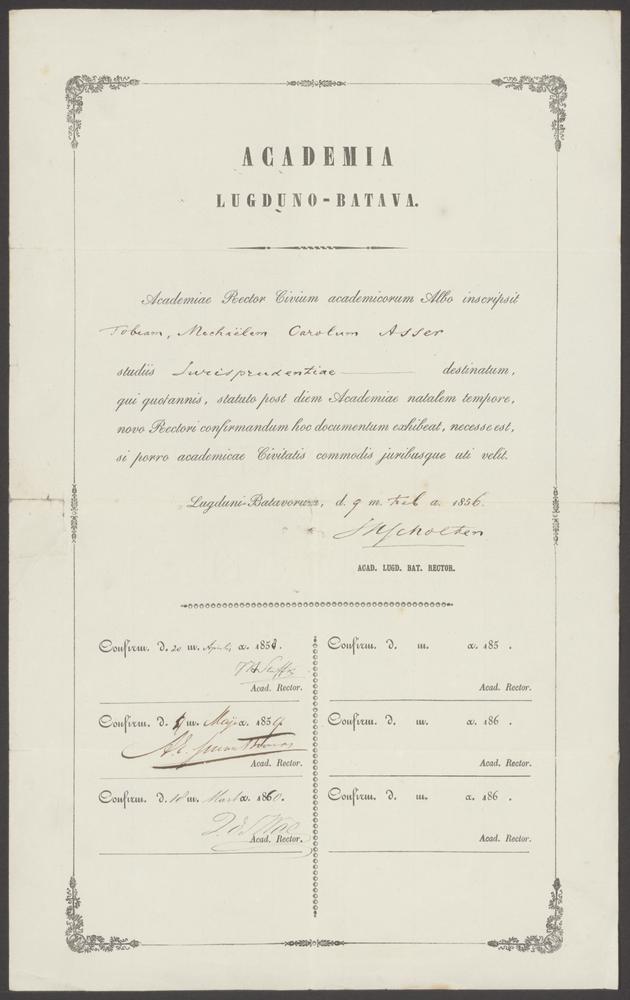 ACADEMIA
LUGDUNO-BATAVA.
Academiae Rector Civium academicorum Albo inscripsit
Tobiam, Michaëlem Carolum Asser
studiis Jurisprudentiae destinatum,
qui quotannis, statuto post diem Academiae natalem tempore,
novo Rectori confirmandum hoc documentum exhibeat, necesse est,
si porro academicae Civitatis commodis juribusque uti velit.
Lugduni-Batavorum, d. 9 m. Feb a. 1856.
Scholten
ACAD. LUGD. BAT. RECTOR.
Confirm. d. 20 m. Aprilis a. 1858.
Acad. Rector.
Confirm. d. m. Maji a. 1859.
Acad. Rector.
Confirm. d. 18 m. Mart a. 1860.
Acad. Rector.
Confirm. d. m. a. 185 .
Acad. Rector.
Confirm. d. m. a. 186 .
Acad. Rector.
Confirm. d. m. a. 186 .
Acad. Rector.